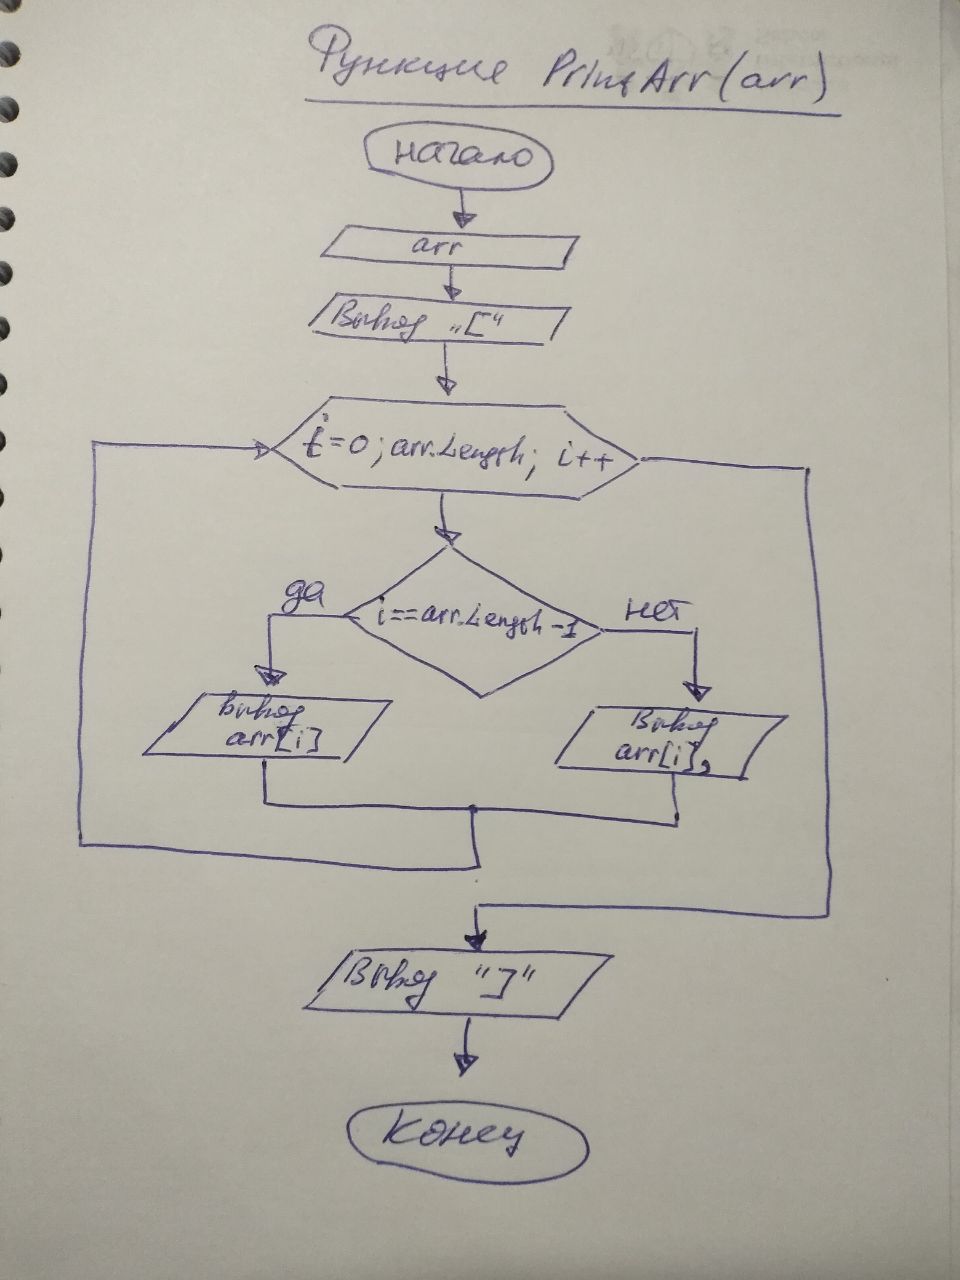 Функция PrintArr(arr)
начало
arr
Вывод „["
i=0; arr.Length; i++
i==arr.Length-1
да
нет
вывод
arr[i]
Вывод
arr[i],
Вывод "]"
Конец